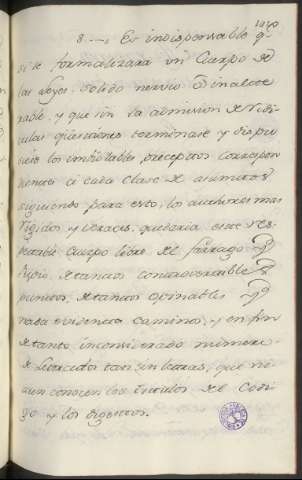 8.—, Es indispensable q.e
si se formalizara un Cuerpo de
las Leyes, solido nervio é inalte
rable, y que sin la admision de ridi
culas questiones terminase y dispu
siese los inmutables preceptos correspon
dientes á cada clase de asuntos
siguiendo para esto, los autores mas
rigidos y veraces, quedaria este res
petable cuerpo libre del fárrago
de tantos controversiable
puntos, de tantos opinables y
caminos, y en fin
de tanto inconsiderado numero
de Letrados tan sin letras, que ni
aun conocen los titulos del Codi
go y los digestos.